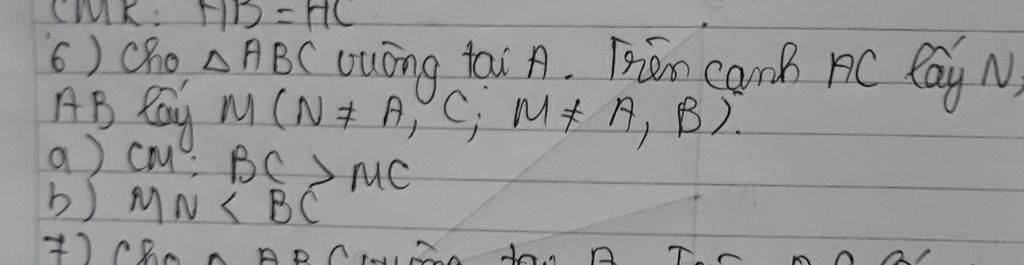 CMR: AB = AC
6) Cho △ ABC vuông tại A. Trên cạnh AC lấy N,
AB lấy M (N ≠ A, C; M ≠ A, B).
a) CM: BC > MC
b) MN < BC
7) Cho △ ABC vuông tại A.